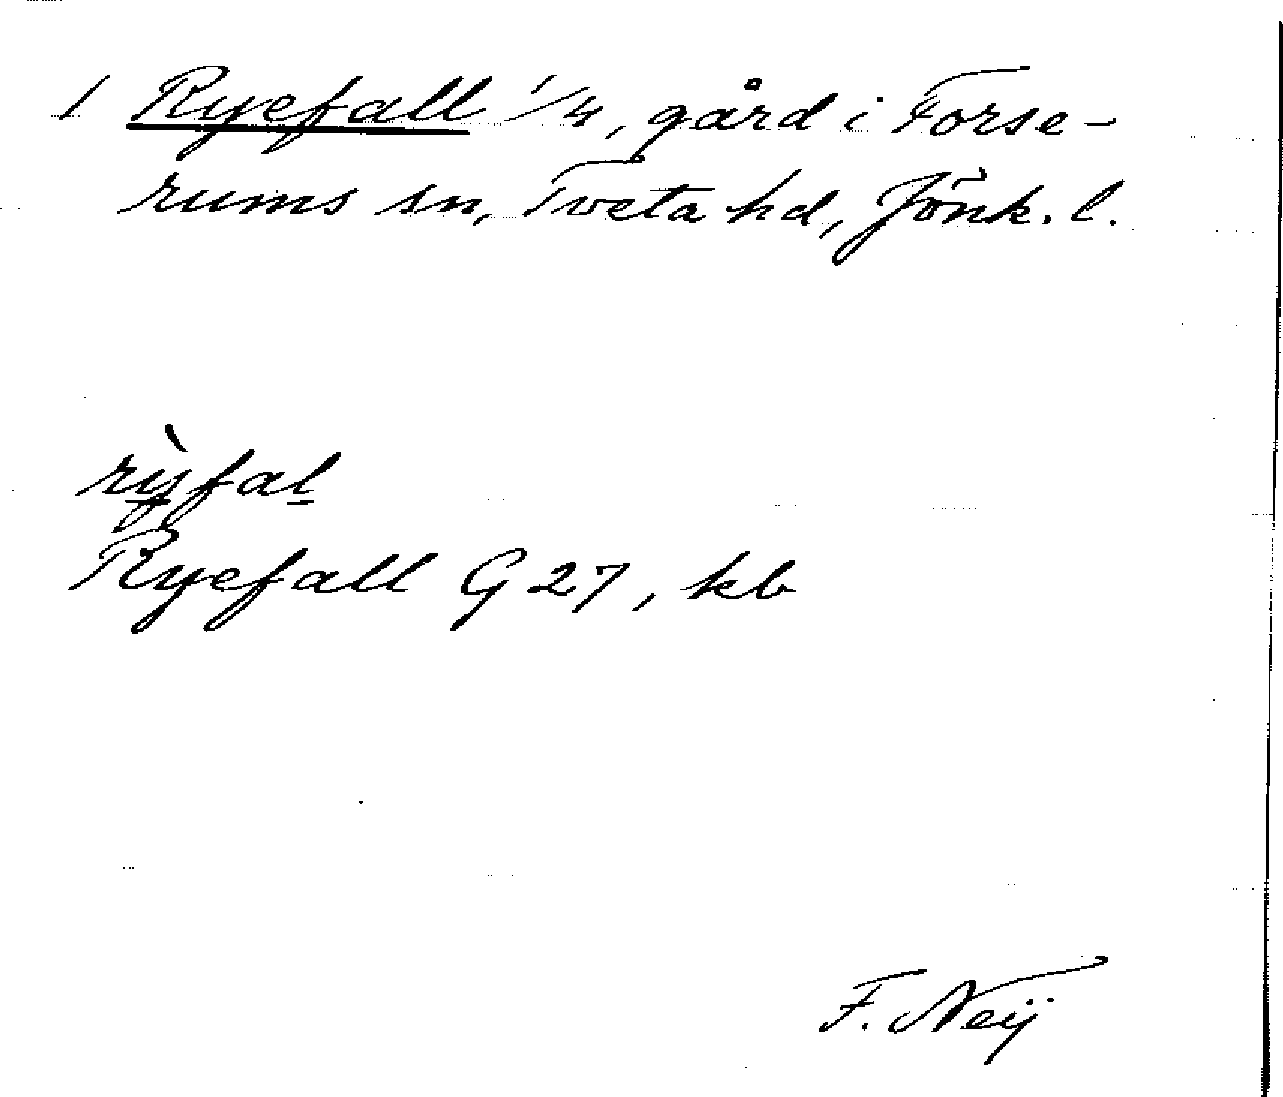 1 Ryefall 1/4, gård i Forse-
rums sn, Tveta hd, Jönk. l.
Ryefall G 27, kb
F. Neij